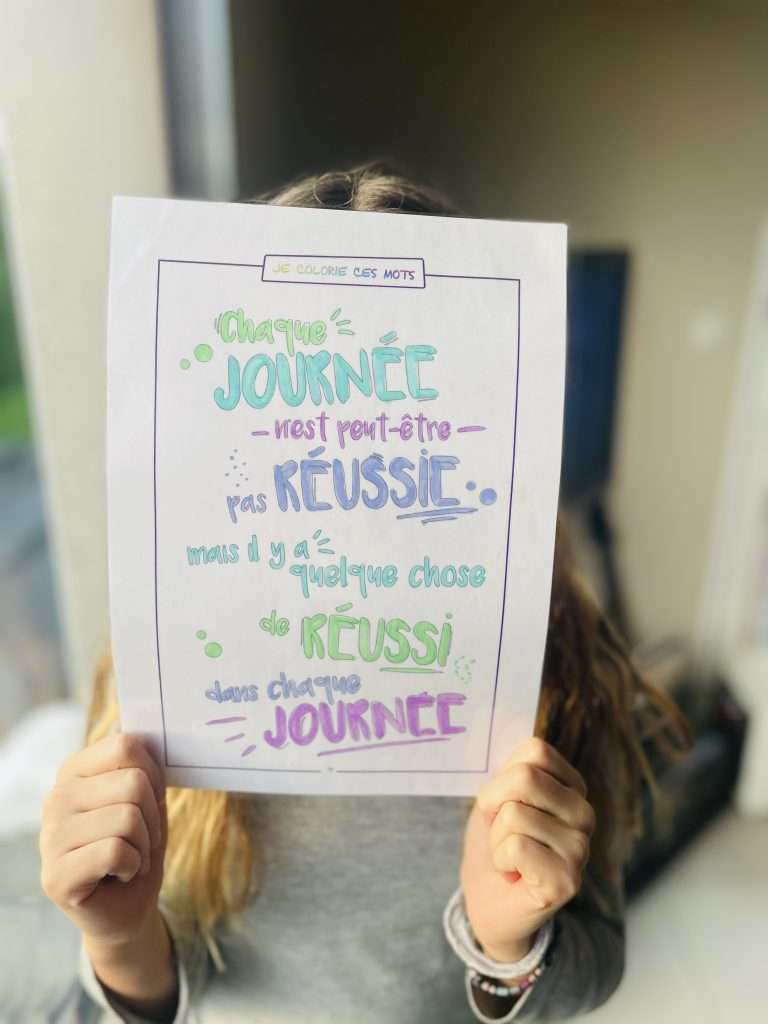 JE COLORIE CES MOTS
Chaque
JOURNÉE
- n'est peut-être -
pas RÉUSSIE
mais il y a
quelque chose
de RÉUSSI
dans chaque
JOURNÉE